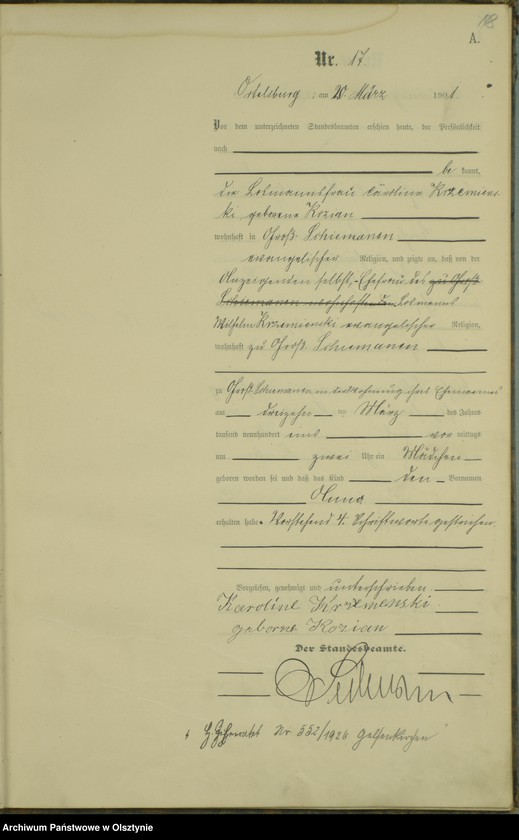 118
A.
Nr. 17.
Ortelsburg, am 20. März 1901.
Vor dem unterzeichneten Standesbeamten erschien heute, der Persönlichkeit
nach
be kannt,
die Losmannsfrau Caroline Krzemiens-
ki geborene Kozian
wohnhaft in Groß Schiemanen
evangelischer Religion, und zeigte an, daß von der
Anzeigenden selbst, Ehefrau des zu Groß
Schiemanen wohnhaften den Losmanns
Wilhelm Krzemienski evangelischer Religion,
wohnhaft zu Groß Schiemanen
zu Groß Schiemanen in der Wohnung ihres Ehemannes
am dreizehn ten März des Jahres
tausend neunhundert eins vor mittags
um zwei Uhr ein Mädchen
geboren worden sei und daß das Kind den Vornamen
Anna
erhalten habe. Vorstehend 4 Schriftworte gestrichen.
Vorgelesen, genehmigt und unterschrieben
Karoline Krzemenski
geborne Kozian
Der Standesbeamte.
Nr 552/1926 Gelsenkirchen
Archiwum Państwowe w Olsztynie